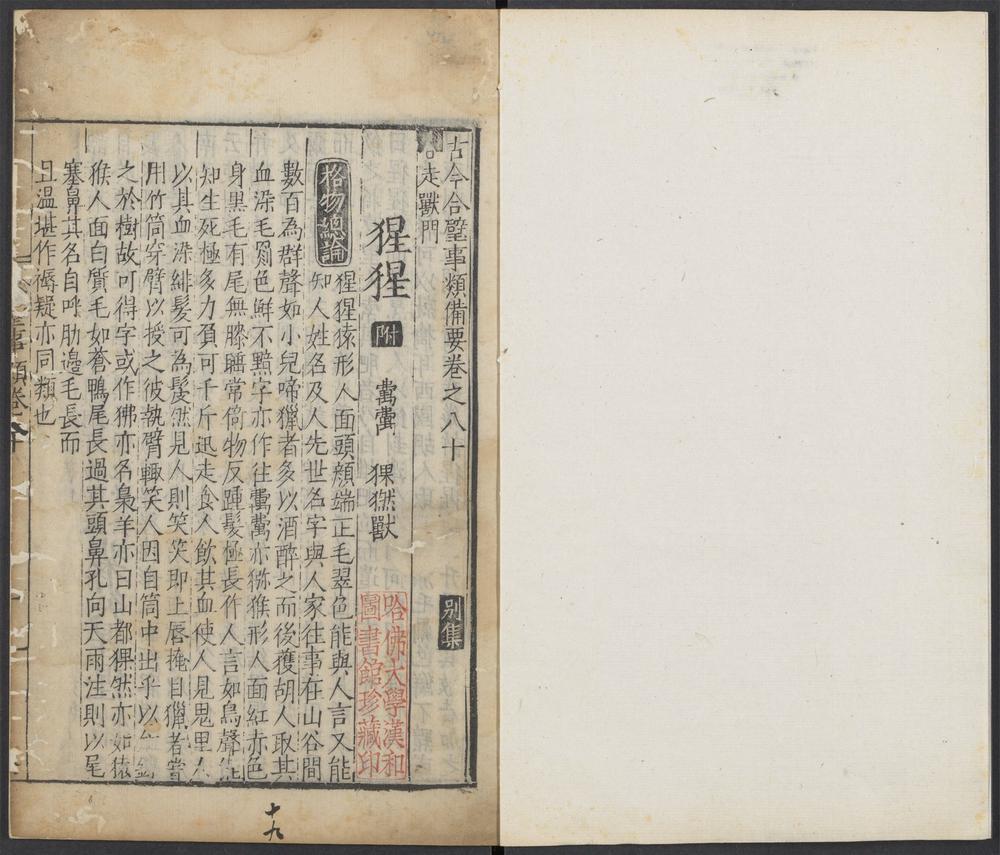 古今合璧事類備要卷之八十 別集
走獸門
猩猩 附 𤢪𤢪 猓然獸
格物總論
猩猩猿形人面頭顏端正毛翠色能與人言又能
知人姓名及人先世名字與人家往事在山谷間
數百為群聲如小兒啼獵者多以酒醉之而後獲胡人取其
血染毛罽色鮮不黯字亦作往 亦獼猴形人面紅赤色
身黑毛有尾無膝睡常倚物反踵髮極長作人言如鳥聲能
知生死極多力負可千斤迅走食人飲其血使人見鬼里人
以其血染緋髮可為髲然見人則笑笑即上唇掩目獵者嘗
用竹筒穿臂以授之彼執臂輙笑人因自筒中出手以
之於樹故可得字或作狒亦名梟羊亦曰山都猓然亦如猿
猴人面白質毛如蒼鴨尾長過其頭鼻孔向天雨注則以尾
塞鼻其名自呼肋邊毛長而
且温堪作褥疑亦同類也
哈佛大學漢和
圖書館珍藏印
十九